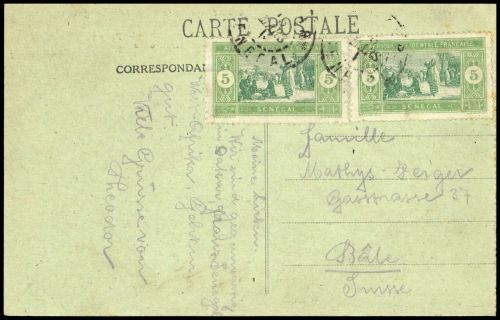 CARTE POSTALE
CORRESPONDAN
SENEGAL
5 5
SENEGAL
AFRIQUE OCCIDENTALE FRANÇAISE
5 5
SENEGAL
Meine Lieben
Wir sind
in Dakar
gut.
Viele Grüsse von
Theodor
Famille
Mathys-Geiger
Gasstrasse 37
Bâle
Suisse